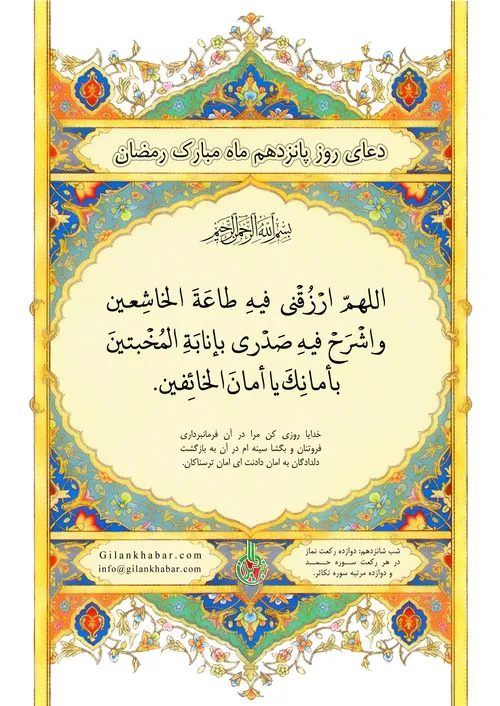 دعای روز پانزدهم ماه مبارک رمضان
بسم الله الرحمن الرحیم
اللهمّ ارْزُقْنی فیهِ طاعَةَ الخاشِعین
واشْرَحْ فیهِ صَدْری بإنابَةِ المُخْبتینَ
بأمانِكَ یا أمانَ الخائِفین.
خدایا روزی کن مرا در آن فرمانبرداری
فروتنان و بگشا سینه ام در آن به بازگشت
دلدادگان به امان دادنت ای امان ترسناکان.
Gilankhabar.com
info@gilankhabar.com
شب شانزدهم: دوازده رکعت نماز
در هر رکعت سوره حمد
و دوازده مرتبه سوره تکاثر.